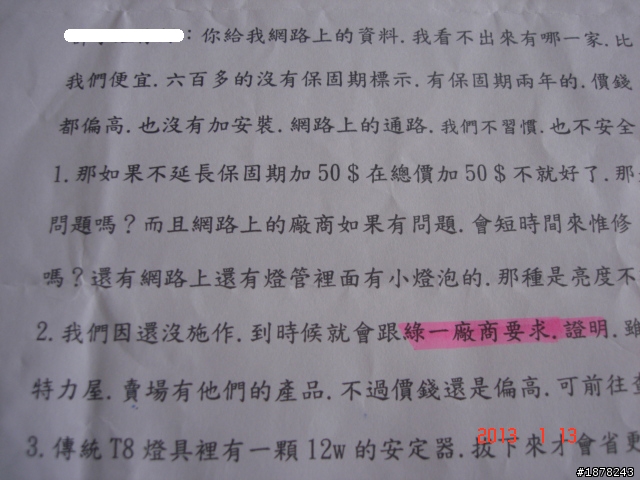 ：你給我網路上的資料.我看不出來有哪一家.比
我們便宜.六百多的沒有保固期標示.有保固期兩年的.價錢
都偏高.也沒有加安裝.網路上的通路.我們不習慣.也不安全
1.那如果不延長保固期加50$在總價加50$不就好了.那
問題嗎？而且網路上的廠商如果有問題.會短時間來惟修
嗎？還有網路上還有燈管裡面有小燈泡的.那種是亮度不
2.我們因還沒施作.到時候就會跟綠一廠商要求.證明.雖
特力屋.賣場有他們的產品.不過價錢還是偏高.可前往查
3.傳統T8燈具裡有一顆12w的安定器.拔下來才會省更
2013 1 13
#1878243